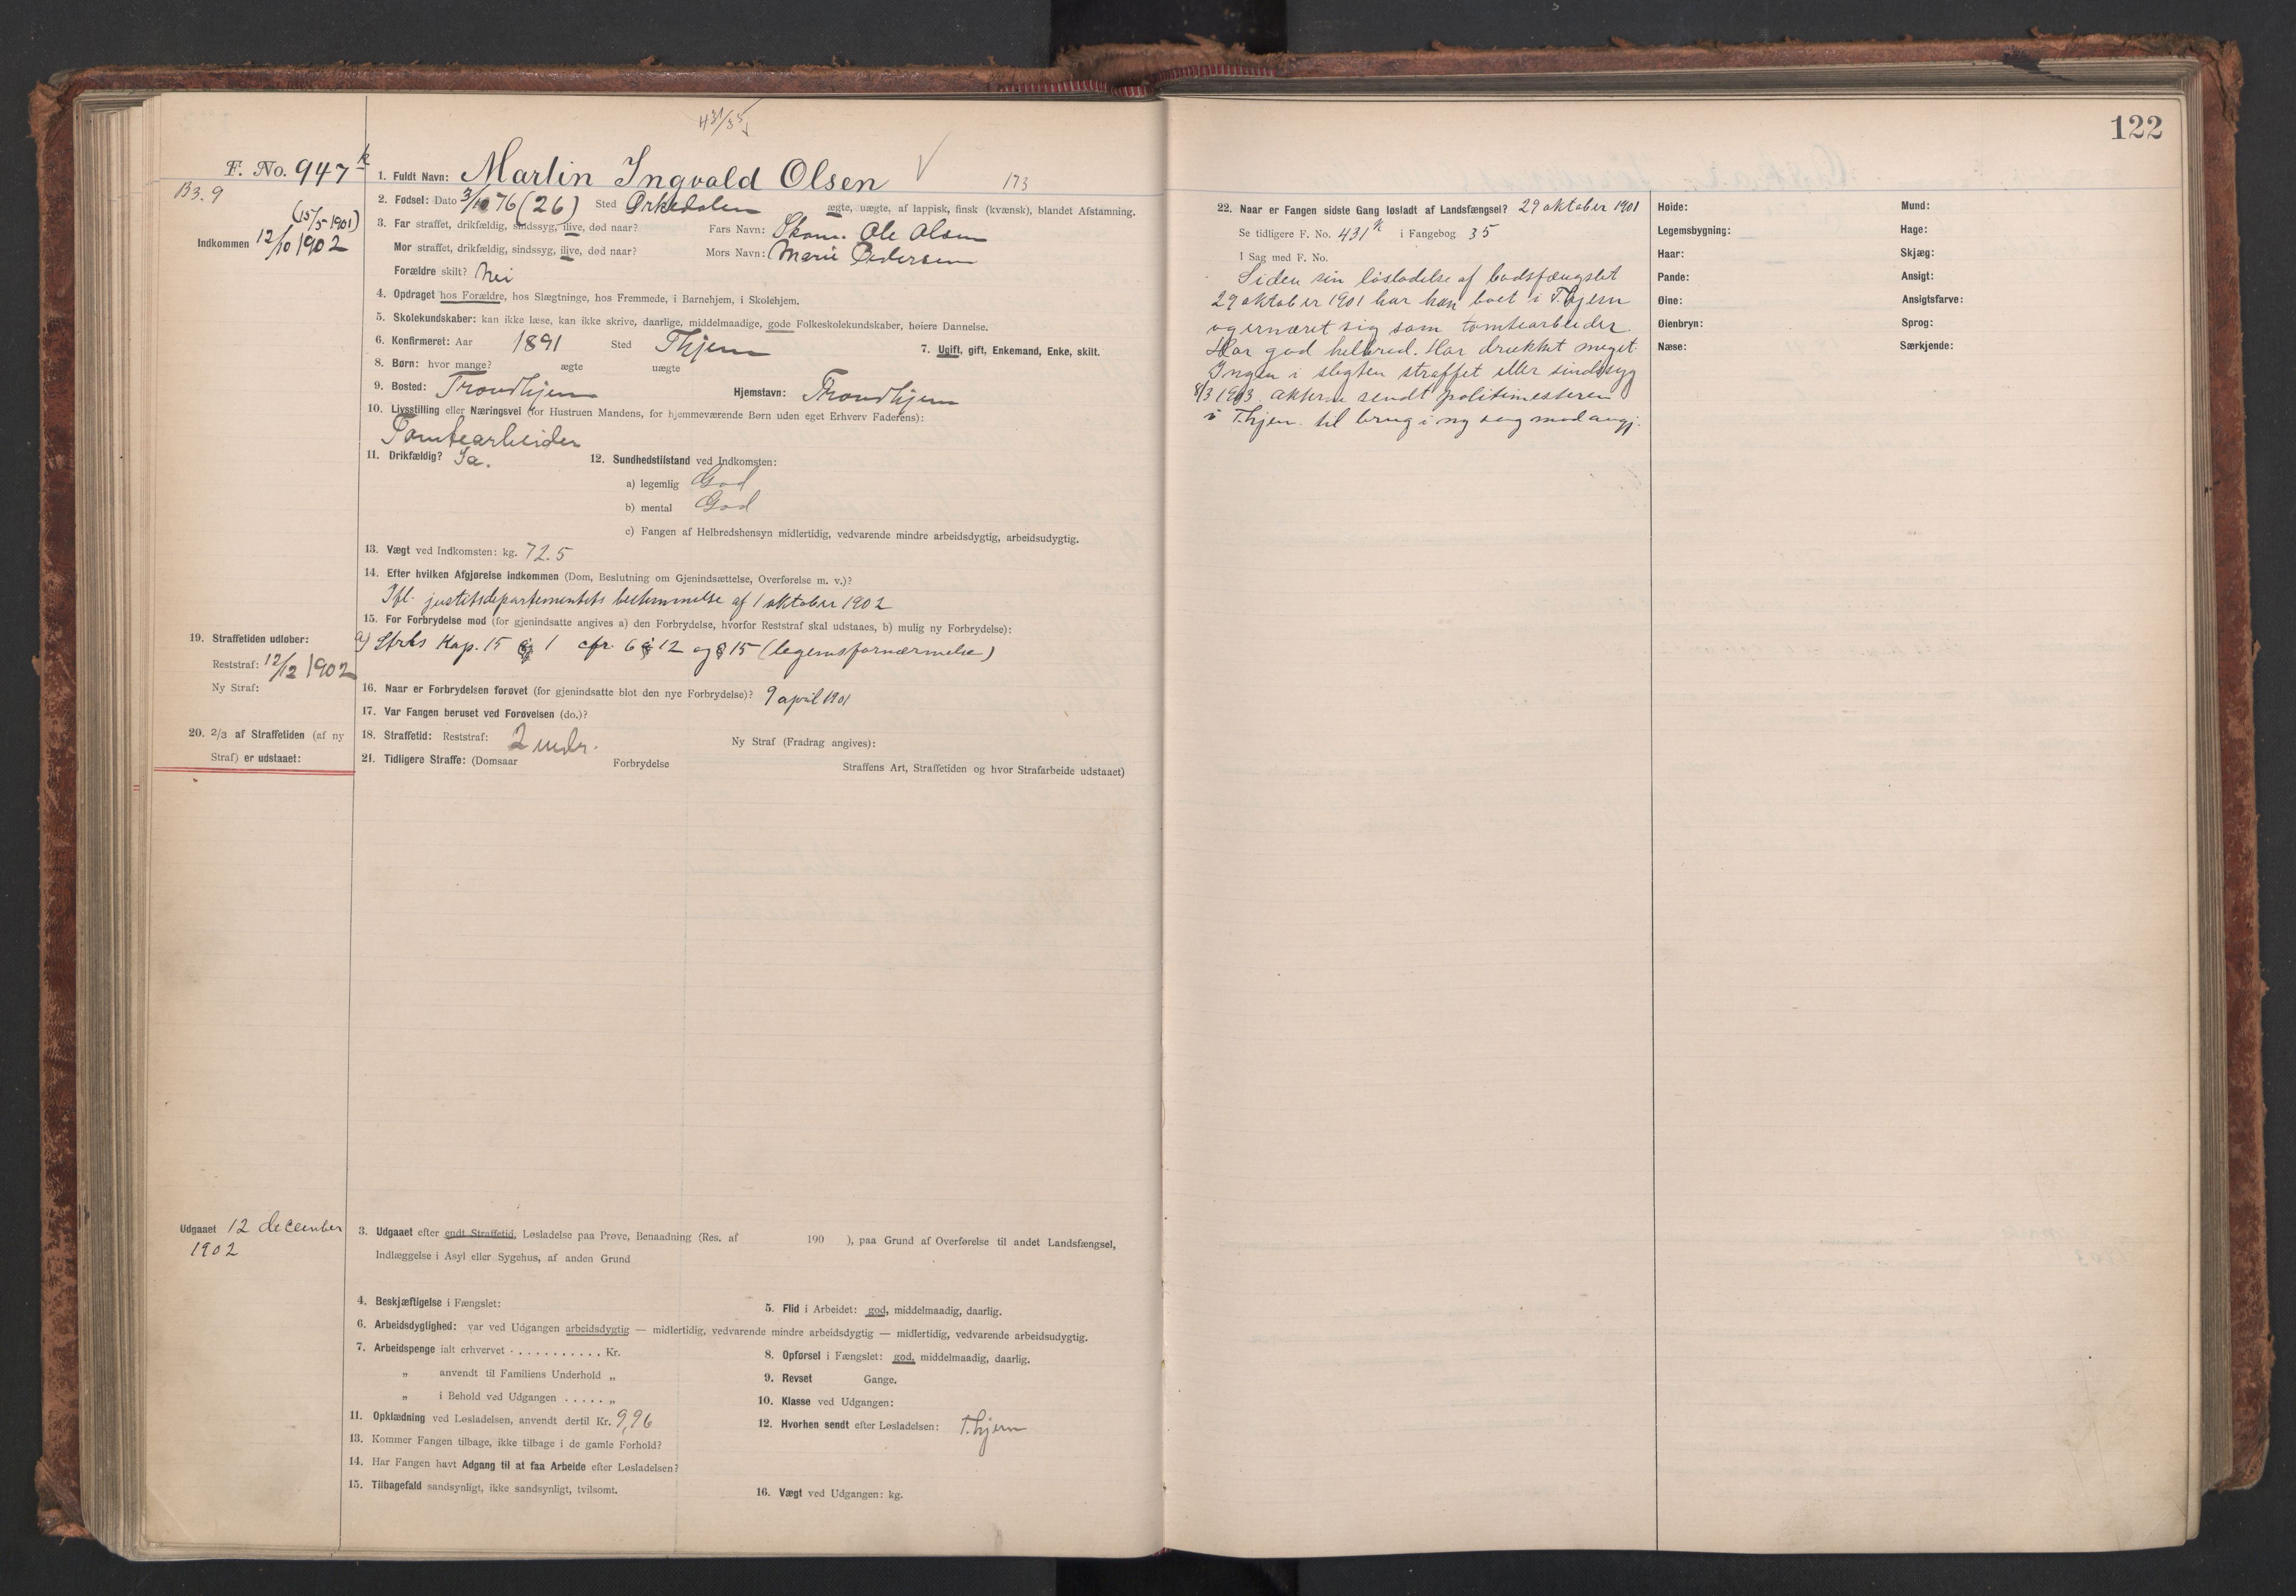 H 31/35
122
F. No. 947 k
B3. 9
(15/5 1901)
Indkommen 12/10 1902
1. Fuldt Navn: Martin Ingvald Olsen
173
2. Fødsel: Dato 3/10 76 (26) Sted Ørkedalen ægte, uægte, af lappisk, finsk (kvænsk), blandet Afstamning.
3. Far straffet, drikfældig, sindssyg, ilive, død naar? Fars Navn: Skom. Ole Olsen
Mor straffet, drikfældig, sindssyg, ilive, død naar? Mors Navn: Marie Pedersen
Forældre skilt? Nei
4. Opdraget hos Forældre, hos Slægtninge, hos Fremmede, i Barnehjem, i Skolehjem.
5. Skolekundskaber: kan ikke læse, kan ikke skrive, daarlige, middelmaadige, gode Folkeskolekundskaber, høiere Dannelse.
6. Konfirmeret: Aar 1891 Sted Thjem 7. Ugift, gift, Enkemand, Enke, skilt.
8. Børn: hvor mange? ægte uægte
9. Bosted: Trondhjem Hjemstavn: Trondhjem
10. Livsstilling eller Næringsvei (for Hustruen Mandens, for hjemmeværende Børn uden eget Erhverv Faderens):
Tomtearbeider
11. Drikfældig? Ja. 12. Sundhedstilstand ved Indkomsten:
a) legemlig God
b) mental God
c) Fangen af Helbredshensyn midlertidig, vedvarende mindre arbeidsdygtig, arbeidsudygtig.
13. Vægt ved Indkomsten: kg. 72.5
14. Efter hvilken Afgjørelse indkommen (Dom, Beslutning om Gjenindsættelse, Overførelse m. v.)?
Ifl. justitsdepartementets bestemmelse af 1 oktober 1902
15. For Forbrydelse mod (for gjenindsatte angives a) den Forbrydelse, hvorfor Reststraf skal udstaaes, b) mulig ny Forbrydelse):
a) Strls Kap. 15 § 1 cfr. 6 § 12 og § 15 (legemsfornærmelse)
16. Naar er Forbrydelsen forøvet (for gjenindsatte blot den nye Forbrydelse)? 9 april 1901
17. Var Fangen beruset ved Forøvelsen (do.)?
18. Straffetid: Reststraf: 2 mdr. Ny Straf (Fradrag angives):
19. Straffetiden udløber:
Reststraf: 12/12 1902
Ny Straf:
20. 2/3 af Straffetiden (af ny
Straf) er udstaaet:
21. Tidligere Straffe: (Domsaar Forbrydelse Straffens Art, Straffetiden og hvor Strafarbeide udstaaet)
Udgaaet 12 december
1902
3. Udgaaet efter endt Straffetid, Løsladelse paa Prøve, Benaadning (Res. af 190 ), paa Grund af Overførelse til andet Landsfængsel,
Indlæggelse i Asyl eller Sygehus, af anden Grund
4. Beskjæftigelse i Fængslet:
5. Flid i Arbeidet: god, middelmaadig, daarlig.
6. Arbeidsdygtighed: var ved Udgangen arbeidsdygtig — midlertidig, vedvarende mindre arbeidsdygtig — midlertidig, vedvarende arbeidsudygtig.
7. Arbeidspenge ialt erhvervet . . . . . . . . . . . Kr.
8. Opførsel i Fængslet: god, middelmaadig, daarlig.
„ anvendt til Familiens Underhold „
9. Revset Gange.
„ i Behold ved Udgangen . . . . . „
10. Klasse ved Udgangen:
11. Opklædning ved Løsladelsen, anvendt dertil Kr. 9,96
12. Hvorhen sendt efter Løsladelsen: T.hjem
13. Kommer Fangen tilbage, ikke tilbage i de gamle Forhold?
14. Har Fangen havt Adgang til at faa Arbeide efter Løsladelsen?
15. Tilbagefald sandsynligt, ikke sandsynligt, tvilsomt.
16. Vægt ved Udgangen: kg.
22. Naar er Fangen sidste Gang løsladt af Landsfængsel? 29 oktober 1901
Se tidligere F. No. 431 k i Fangebog 35
I Sag med F. No.
Siden sin løsladelse af bodsfængslet
29 oktober 1901 har han boet i T.hjem
og ernæret sig som tomtearbeider.
Har god helbred. Har drukket meget.
Ingen i slegten straffet eller sindssyg
8/3 1903 akterne sendt politimesteren
i T.hjem til brug i ny sag mod angj.
Høide:
Legemsbygning:
Haar:
Pande:
Øine:
Øienbryn:
Næse:
Mund:
Hage:
Skjæg:
Ansigt:
Ansigtsfarve:
Sprog:
Særkjende: